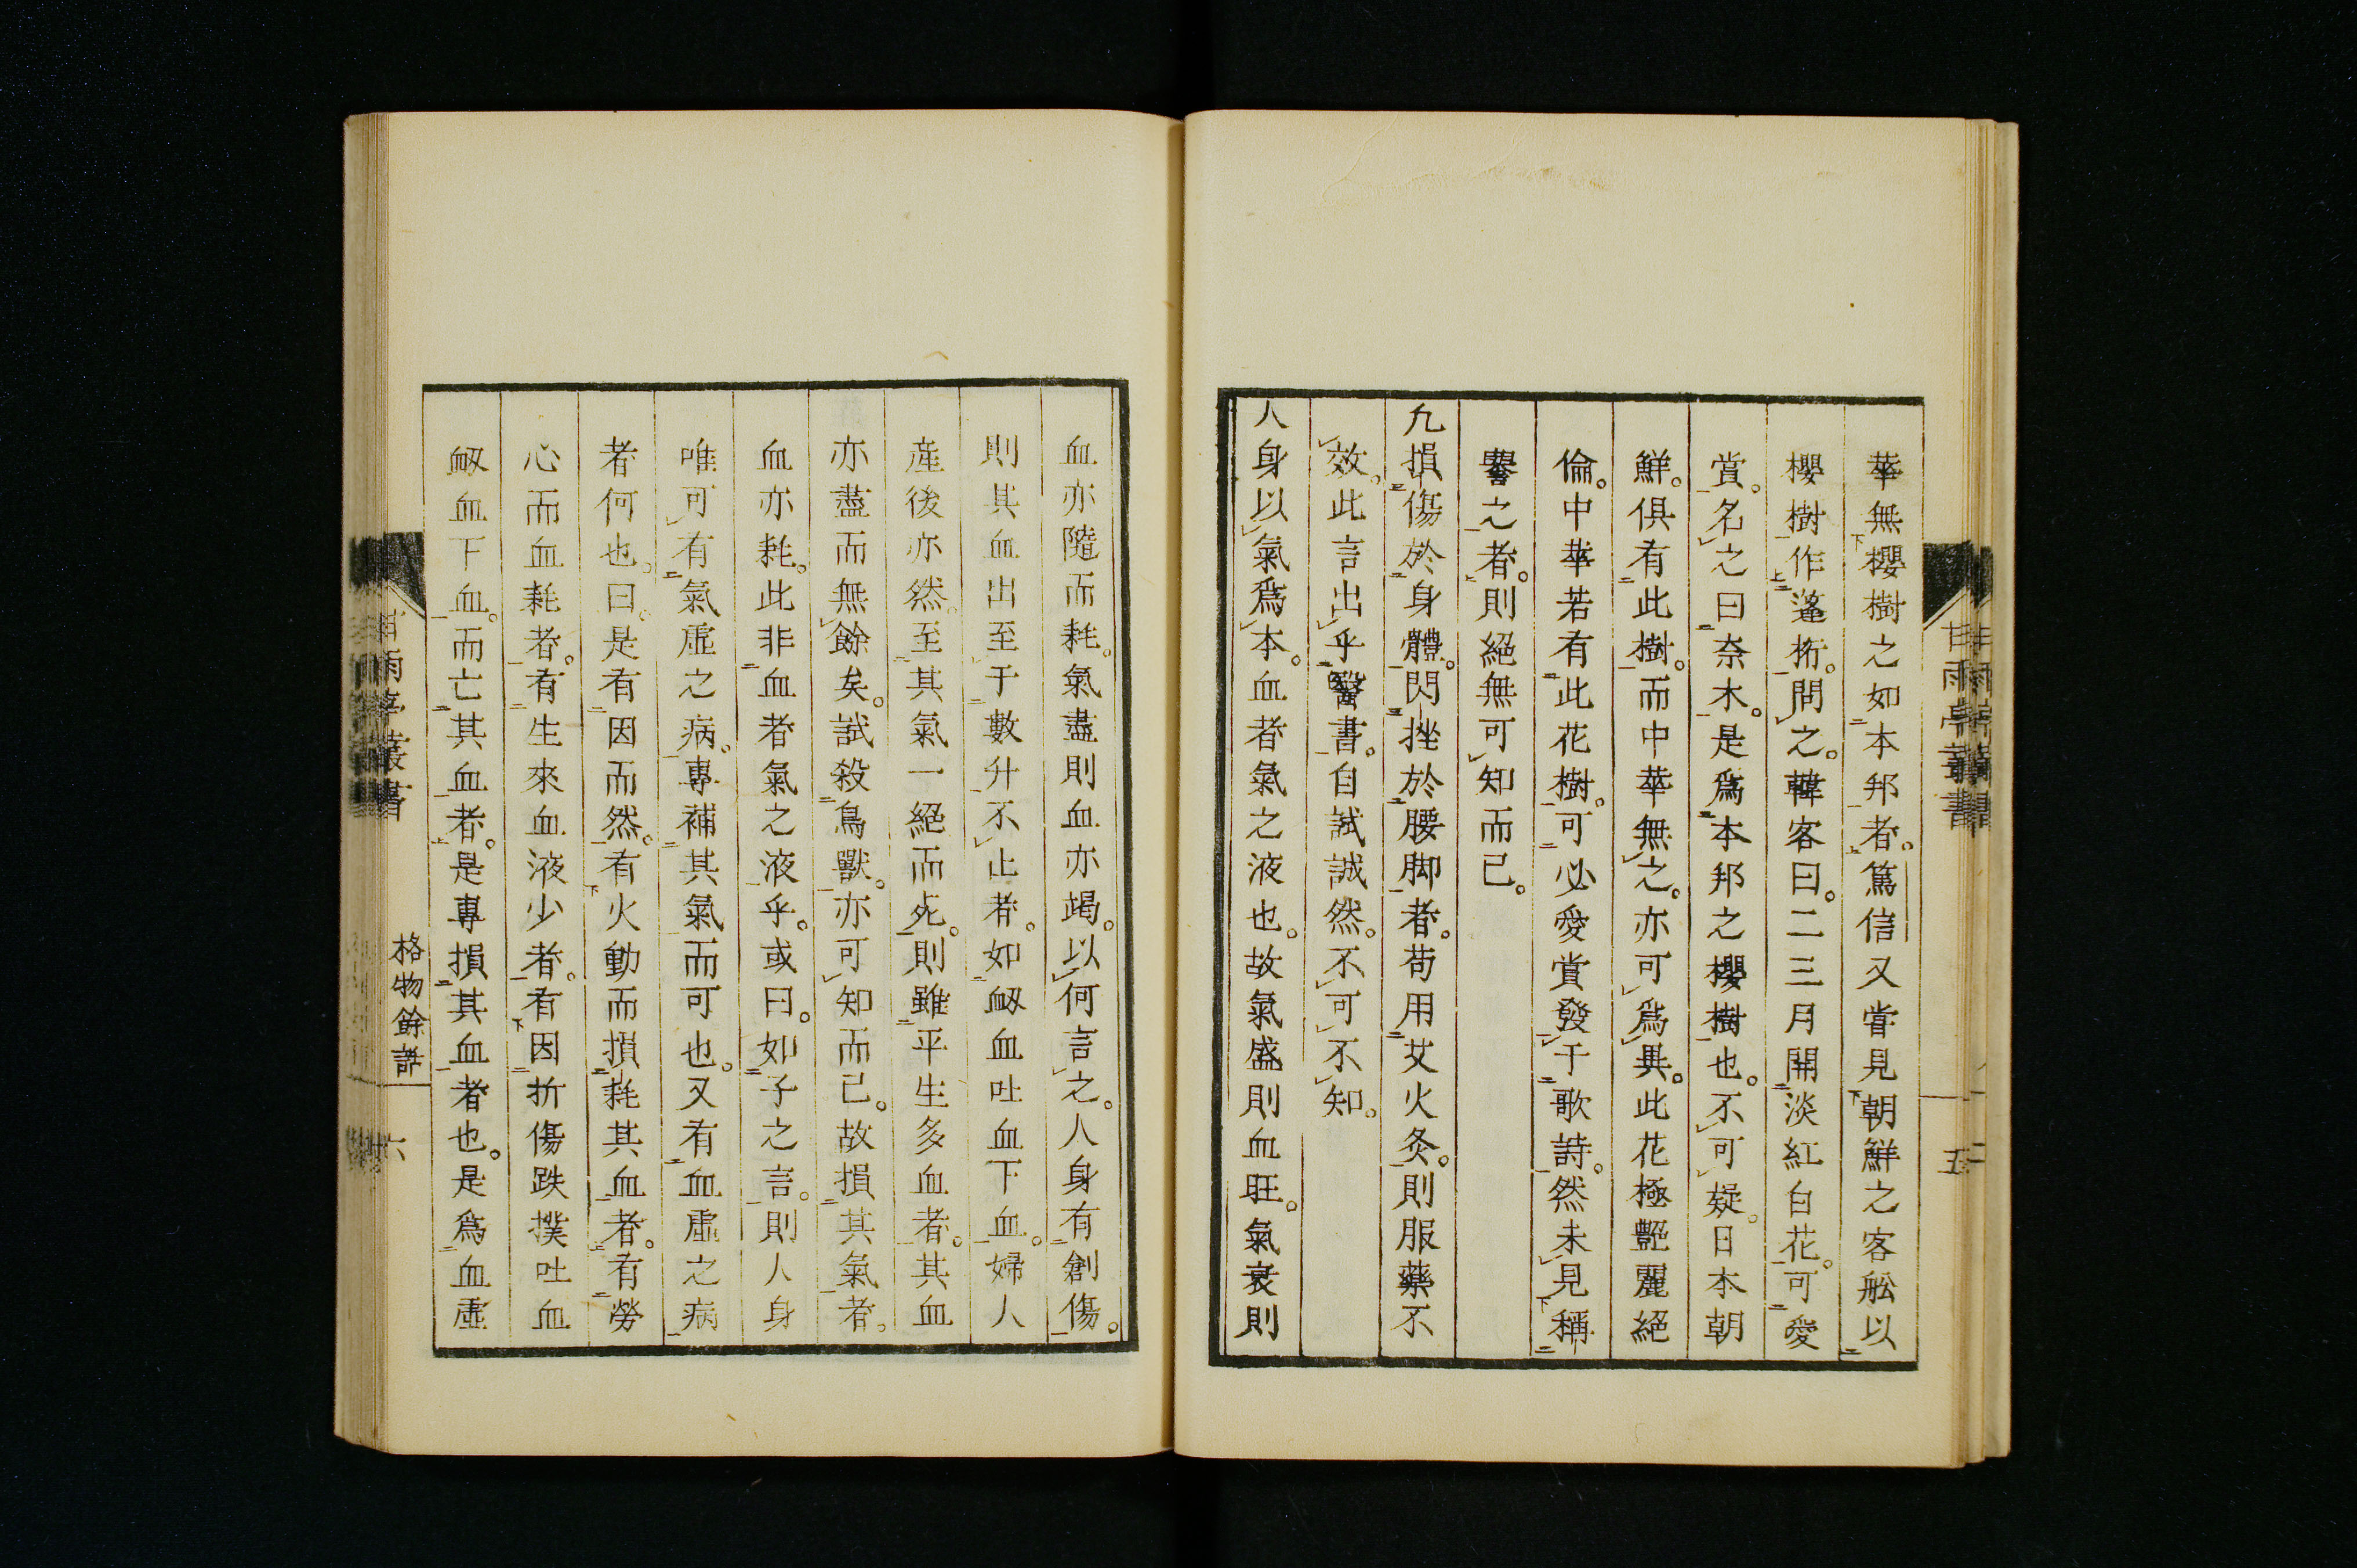 華無櫻樹之如本邦者。篤信又嘗見朝鮮之客舩以
櫻樹作蓬桁。問之。韓客曰。二三月開淡紅白花。可愛
賞。名之曰奈木。是爲本邦之櫻樹也。不可疑。日本朝
鮮。俱有此樹。而中華無之。亦可爲異。此花極艷麗絕
倫。中華若有此花樹。可必愛賞發于歌詩。然未見稱
譽之者。則絕無可知而已。
凢損傷於身體。閃挫於腰脚者。苟用艾火灸。則服藥不
效。此言出乎醫書。自試誠然。不可不知。
人身以氣爲本。血者氣之液也。故氣盛則血旺。氣衰則
五
血亦隨而耗。氣盡則血亦竭。以何言之。人身有創傷。
則其血出至于數升不止者。如衂血吐血下血。婦人
産後亦然。至其氣一絕而死。則雖平生多血者。其血
亦盡而無餘矣。試殺鳥獸。亦可知而已。故損其氣者。
血亦耗。此非血者氣之液乎。或曰。如子之言。則人身
唯可有氣虛之病。專補其氣而可也。又有血虛之病
者何也。曰。是有因而然。有火動而損耗其血者。有勞
心而血耗者。有生來血液少者。有因折傷跌撲吐血
衂血下血。而亡其血者。是專損其血者也。是爲血虛
格物餘話
六